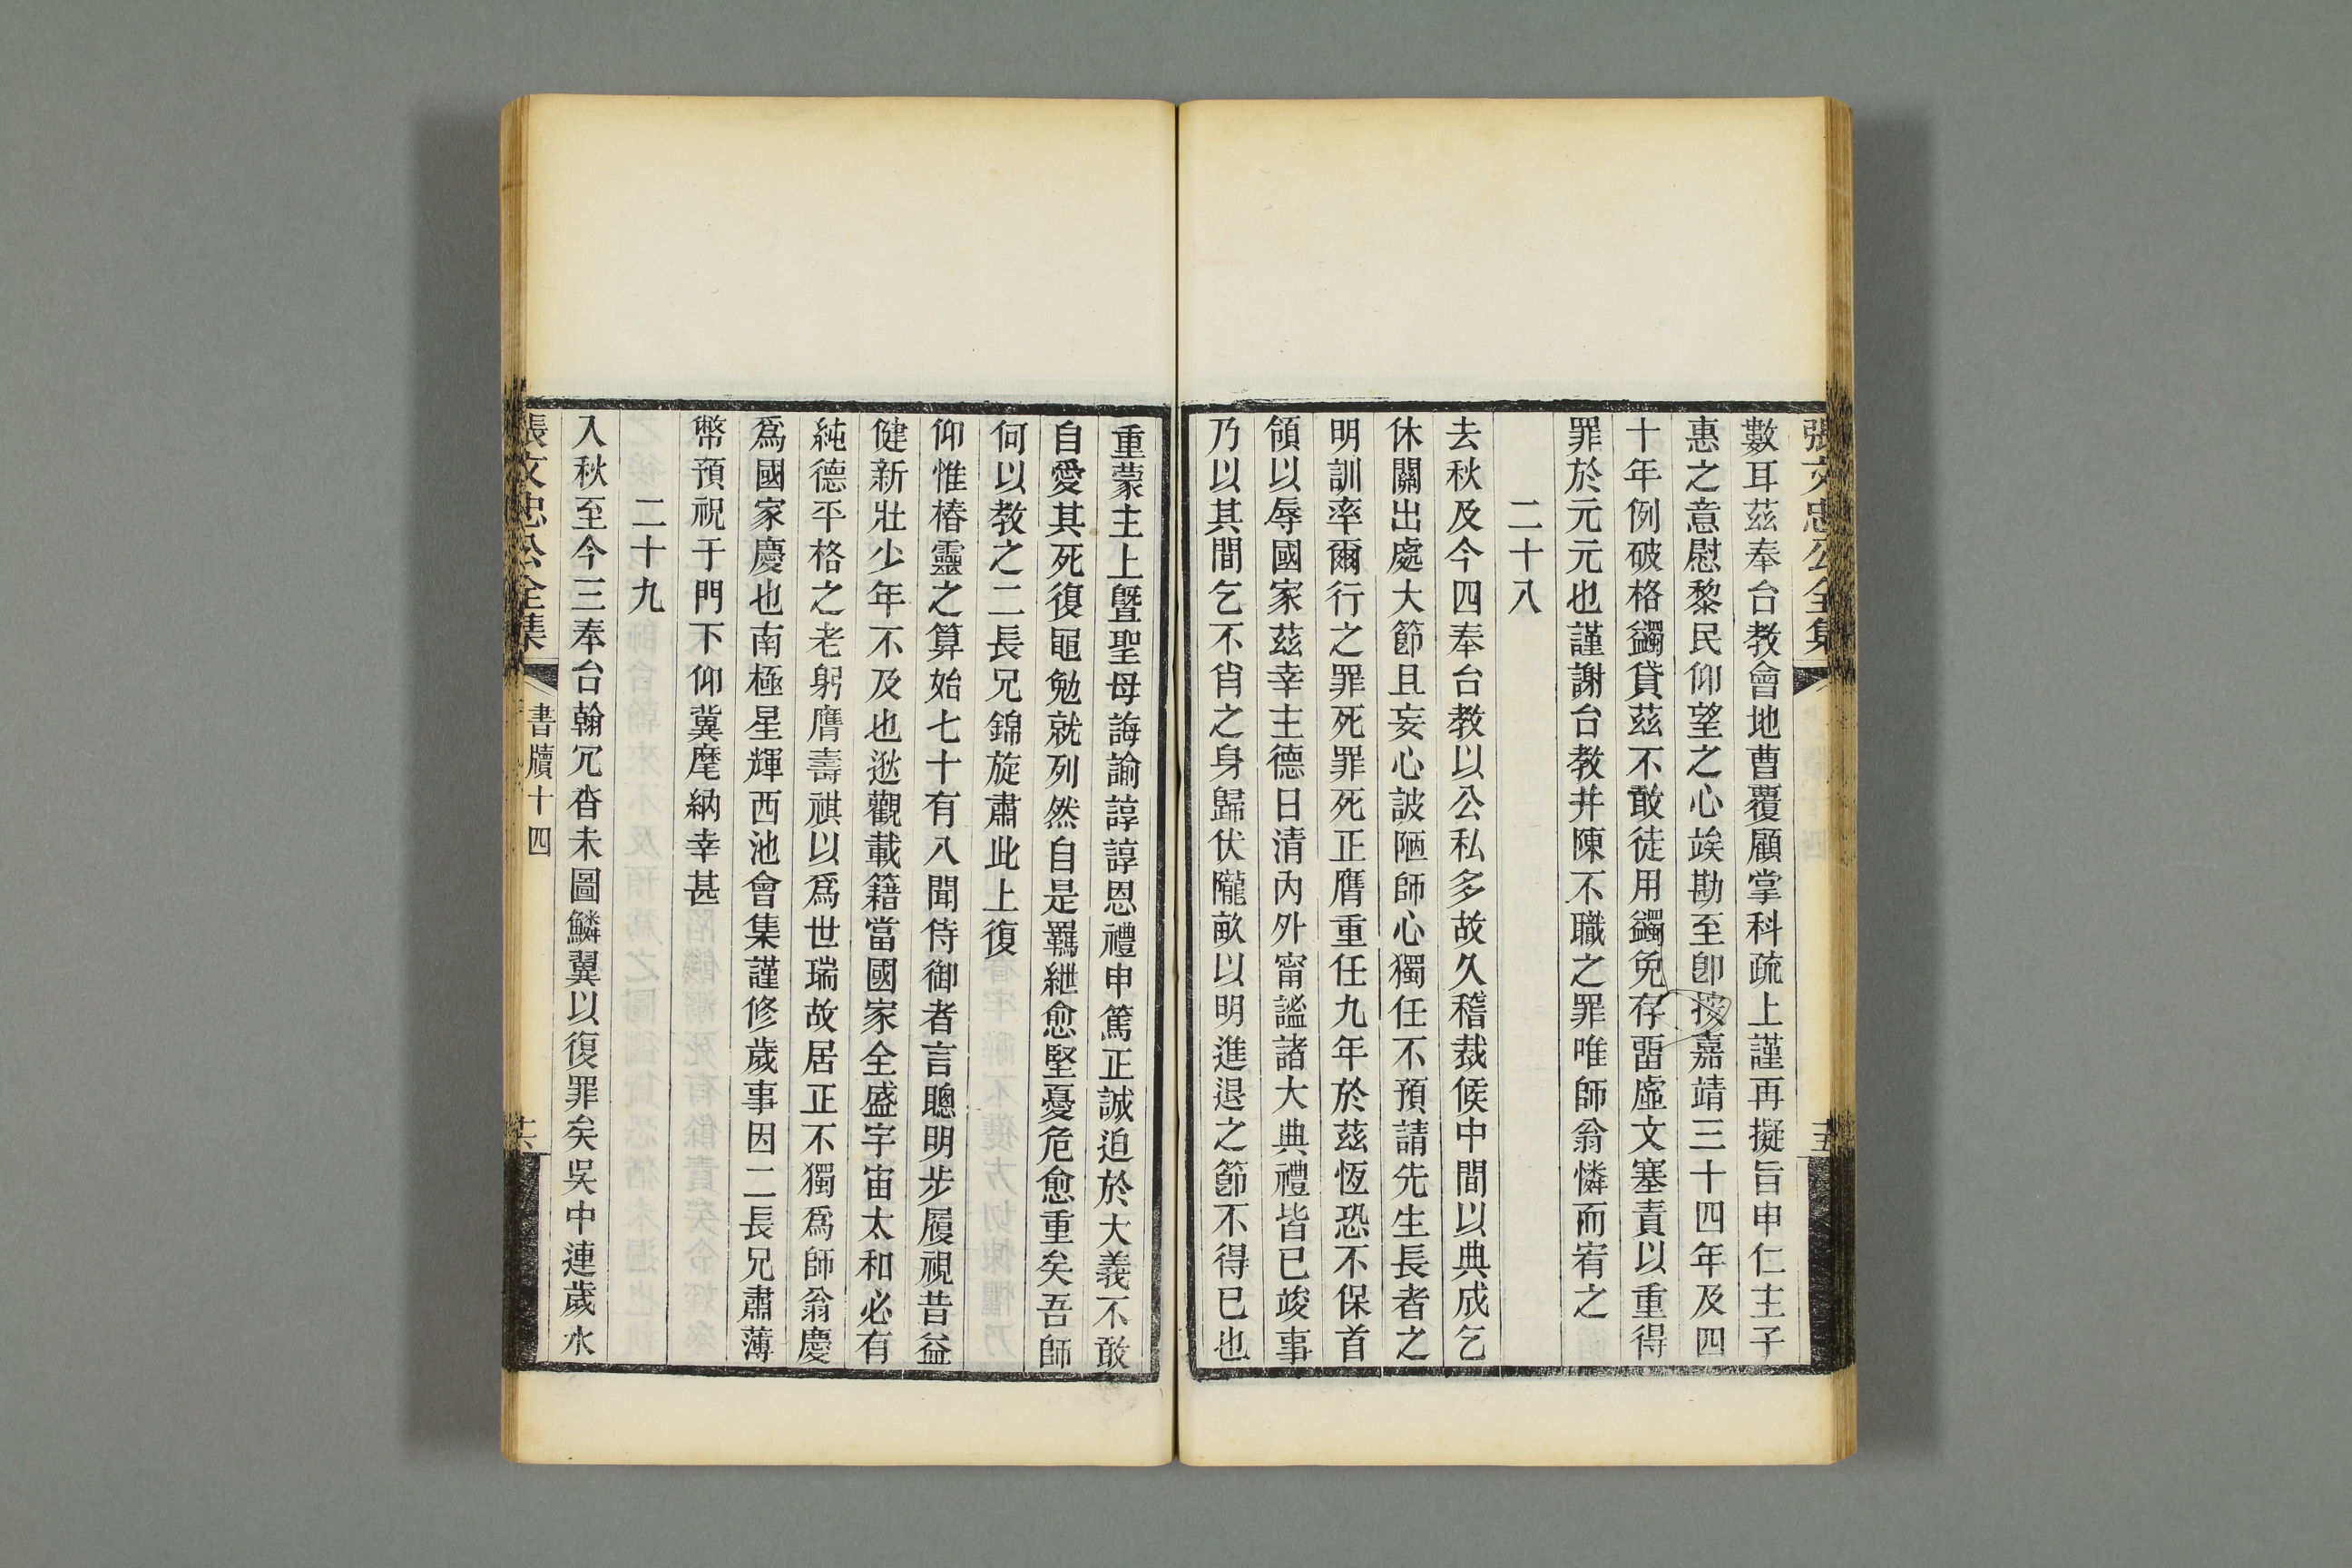 張文忠公全集
數耳茲奉台教會地曹覆顧掌科疏上謹再擬旨申仁主子
惠之意慰黎民仰望之心竢勘至卽按嘉靖三十四年及四
十年例破格蠲貸茲不敢徒用蠲免存畱虛文塞責以重得
罪於元元也謹謝台教并陳不職之罪唯師翁憐而宥之
二十八
去秋及今四奉台教以公私多故久稽裁候中間以典成乞
休關出處大節且妄心詖陋師心獨任不預請先生長者之
明訓率爾行之罪死罪死正膺重任九年於茲恆恐不保首
領以辱國家茲幸主德日清內外甯謐諸大典禮皆已竣事
乃以其間乞不肖之身歸伏隴畝以明進退之節不得已也
重蒙主上曁聖母誨諭諄諄恩禮申篤正誠迫於大義不敢
自愛其死復黽勉就列然自是羈紲愈堅憂危愈重矣吾師
何以教之二長兄錦旋肅此上復
仰惟椿靈之算始七十有八聞侍御者言聰明步履視昔益
健新壯少年不及也逖觀載籍當國家全盛宇宙太和必有
純德平格之老躬膺壽祺以爲世瑞故居正不獨爲師翁慶
爲國家慶也南極星輝西池會集謹修歲事因二長兄肅薄
幣預祝于門下仰冀麾納幸甚
二十九
入秋至今三奉台翰冗沓未圖鱗翼以復罪矣吳中連歲水
張文忠公全集
書牘十四
十六